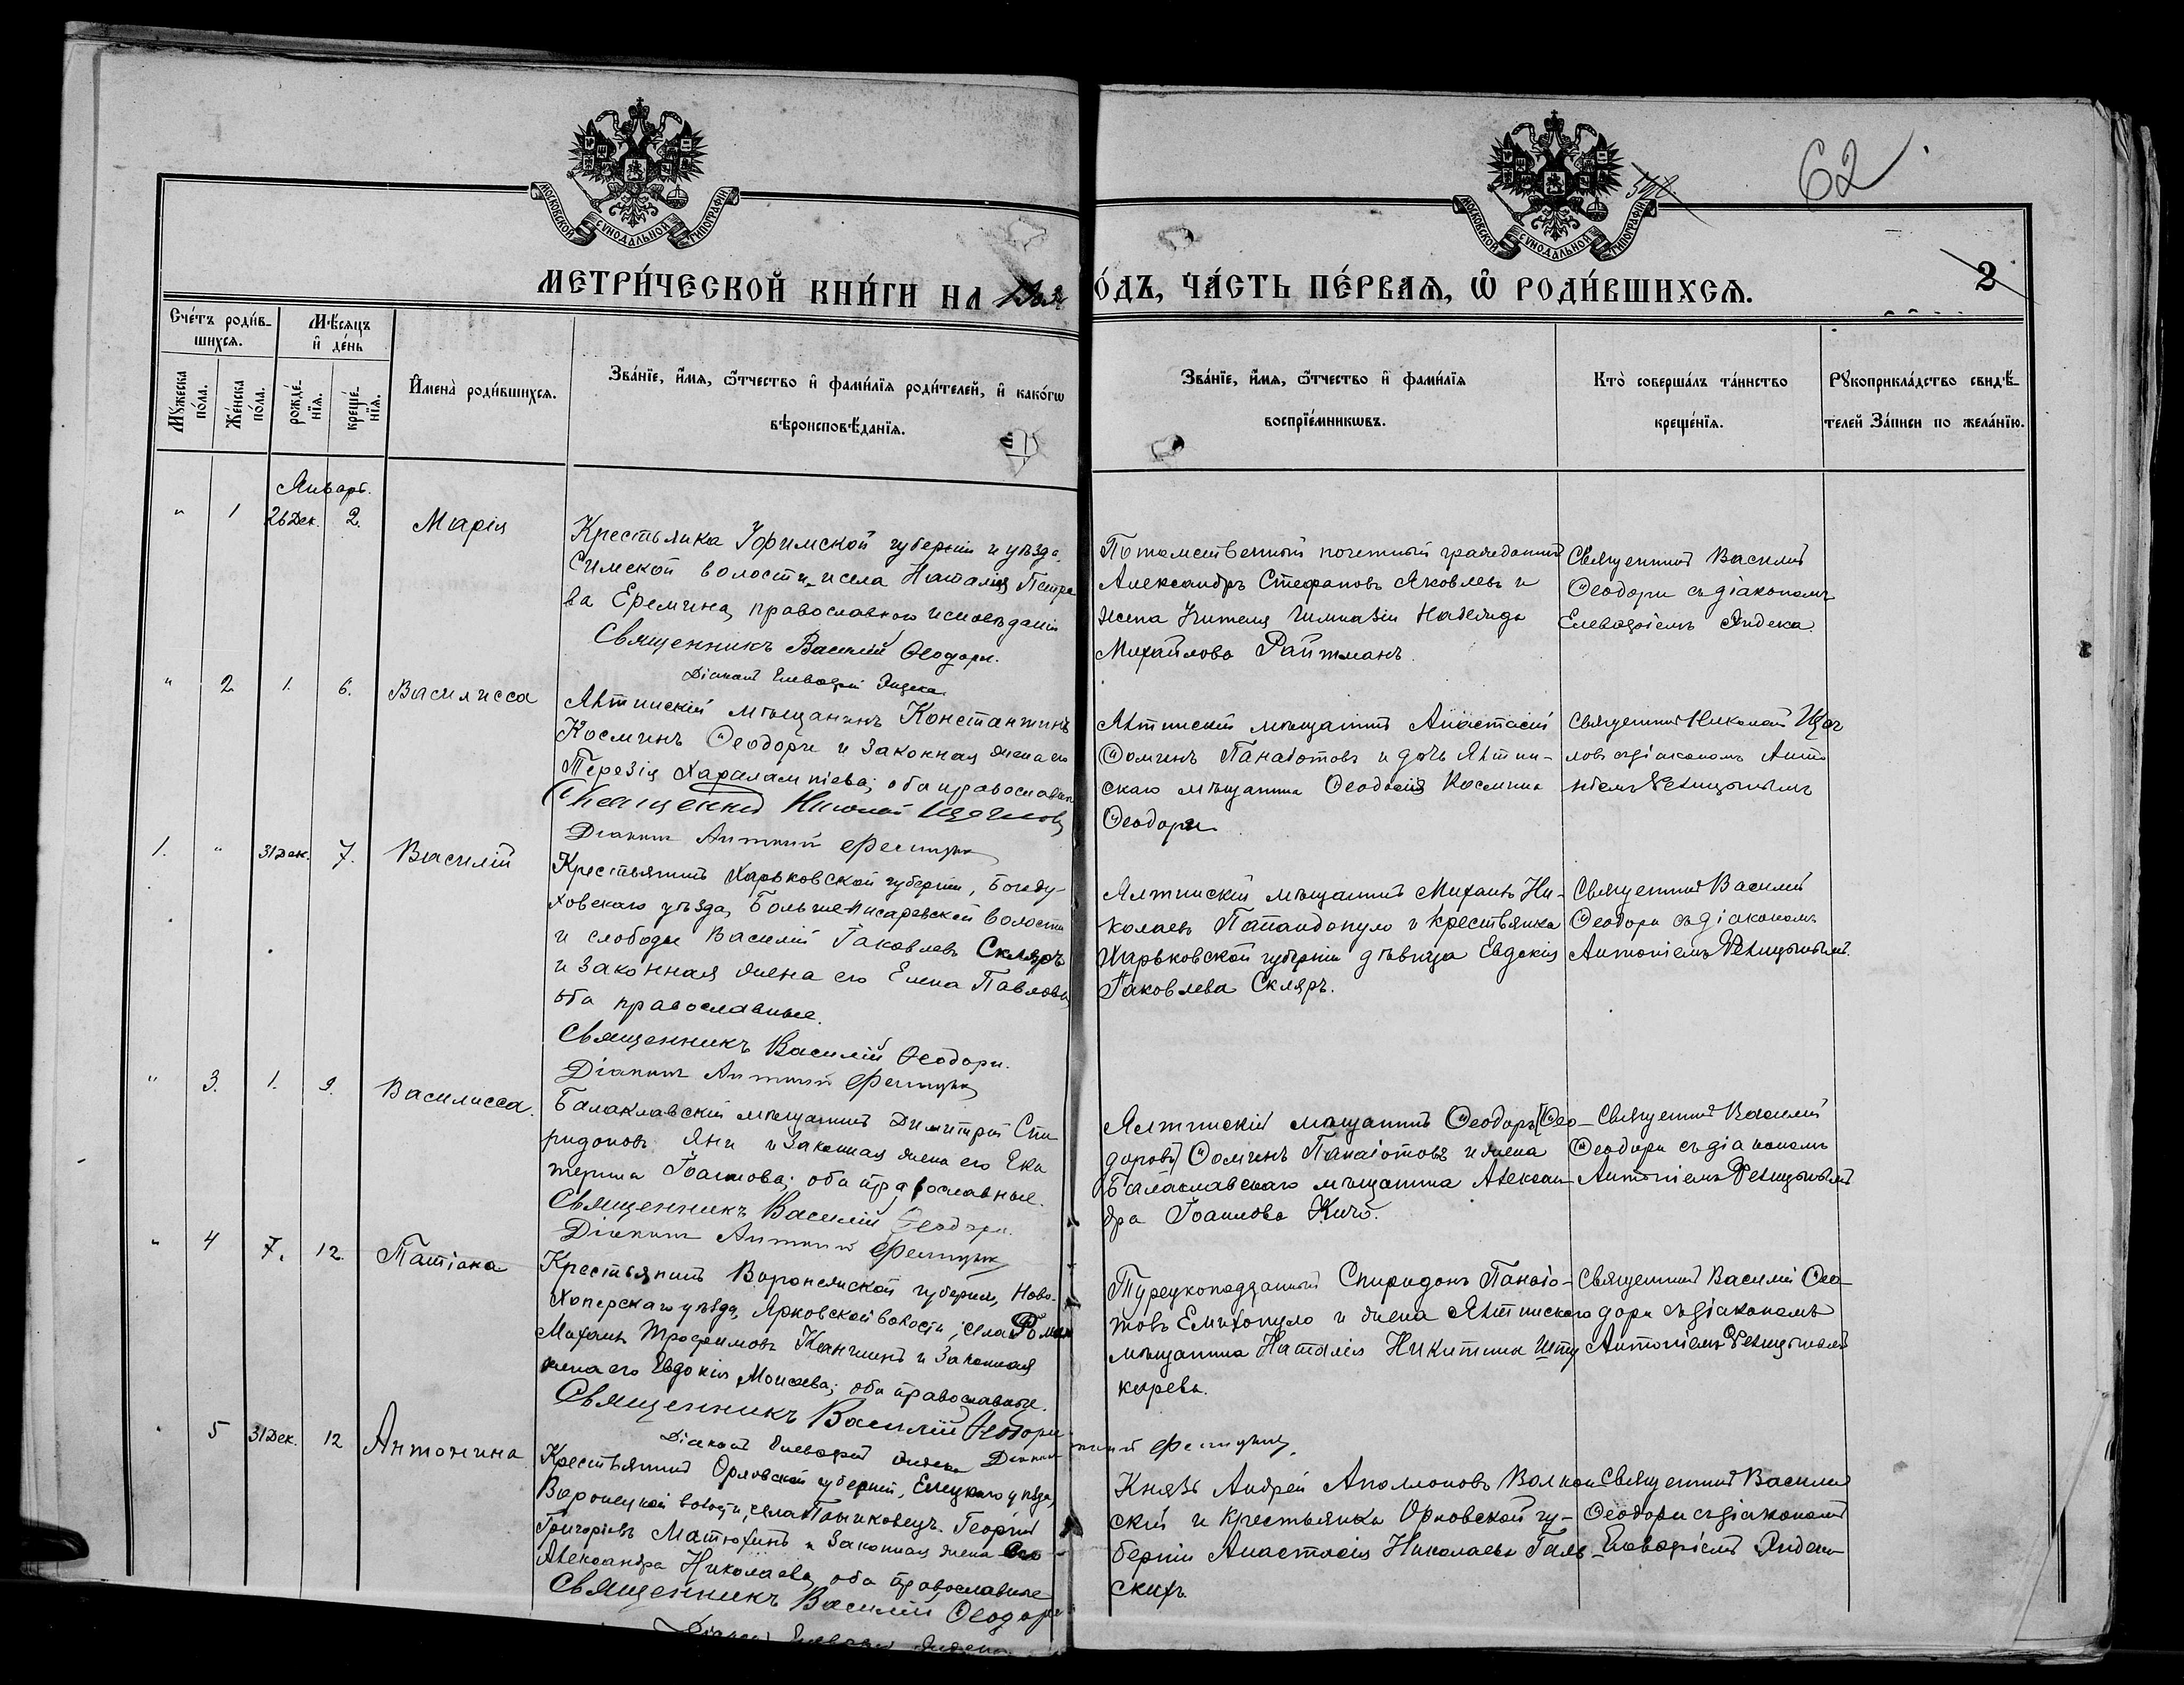 МОСКОВСКОЙ СѴНОДАЛЬНОЙ ТИПОГРАФІИ
МОСКОВСКОЙ СѴНОДАЛЬНОЙ ТИПОГРАФІИ
62
МЕТРИ́ЧЕСКОЙ КНИ́ГИ НА
О́ДЪ, ЧА́СТЬ ПЕ́РВАѦ, Ѿ РОДИ́ВШИХСѦ.
2
Сче́тъ роди́в-
шихсѧ.
Мѣ́сѧцъ
и҆ де́нь
Мꙋ́жеска по́ла.
Же́нска по́ла.
рожде́-
нїѧ.
креще́-
нїѧ.
И҆мена̀ роди́вшихсѧ.
Зва́нїе, и҆́мѧ, ѻ҆́тчество и҆ фами́лїѧ роди́телей, и҆ како́гѡ
вѣроисповѣ́данїѧ.
Зва́нїе, и҆́мѧ, ѻ҆́тчество и҆ фами́лїѧ
воспрїе́мникѡвъ.
Кто̀ соверша́лъ та́инство
креще́нїѧ.
Рꙋкоприкла́дство свидѣ́-
телей За́писи по жела́нїю.
Январь.
" 1 26 Дек. 2. Марія
Крестьянка Уфимской губерніи и уѣзда,
Симской волости и села Наталія Петро
ва Еремина, православнаго исповѣданія
Священникъ Василій Ѳеодори.
Діаконъ Елевѳерій Яндека
Потомственный почетный гражданинъ
Александръ Стефановъ Яковлевъ и
жена Учителя Гимназіи Надежда
Михайлова Райтманъ.
Священникъ Василій
Ѳеодори съ діакономъ
Елевѳеріемъ Яндека.
" 2 1. 6. Василисса
Ялтинскій мѣщанинъ Константинъ
Косминъ Ѳеодори и законная жена его
Терезія Харалампіева; оба православн
Священникъ Николай
Діаконъ Антоній
Ялтинскій мѣщанинъ Анастасій
Ѳоминъ Панаіотовъ и дочь Ялтин-
скаго мѣщанина Ѳеодосія Космина
Ѳеодори
Священникъ Николай
ловъ съ діакономъ Анто
ніемъ
1. " 31 Дек. 7. Василій
Крестьянинъ Харьковской губерніи, Богоду-
ховскаго уѣзда, Больше-Писаревской волости
и слободы Василій Іаковлевъ Скляръ
и законная жена его Елена Павлова,
оба православные.
Священникъ Василій Ѳеодори.
Діаконъ Антоній
Ялтинскій мѣщанинъ Михаилъ Ни-
колаевъ Папандопуло и крестьянка
Харьковской губерніи дѣвица Евдокія
Іаковлева Скляръ.
Священникъ Василій
Ѳеодори съ діакономъ
Антоніемъ
" 3. 1. 9. Василисса.
Балаклавскій мѣщанинъ Димитрій Спи
ридоновъ Яни и законная жена его Ека
терина Іоаннова; оба православные.
Священникъ Василій Ѳеодори.
Діаконъ Антоній
Ялтинскій мѣщанинъ Ѳеодоръ (Ѳео-
доровъ) Ѳоминъ Панаіотовъ и жена
Балаклавскаго мѣщанина Алексан-
дра Іоаннова Кичо.
Священникъ Василій
Ѳеодори съ діакономъ
Антоніемъ
" 4 7. 12. Татіана
Крестьянинъ Воронежской губерніи, Ново-
Хоперскаго уѣзда, Ярковской волости, села
Михаилъ Трофимовъ и законная
жена его Евдокія Моисеева; оба православные.
Священникъ Василій Ѳеодори
Діаконъ Елевѳерій Яндека Діаконъ Антоній
Турецкоподданный Спиридонъ Панаіо-
товъ Емихопуло и жена Ялтинскаго
мѣщанина Наталія Никитина
карева.
Священникъ Василій Ѳео-
дори съ діакономъ
Антоніемъ
" 5 31 Дек. 12 Антонина
Крестьянинъ Орловской губерніи, Елецкаго уѣзда,
Воронецкой волости, села Георгій
Григорьевъ Матюхинъ и законная жена его
Александра Николаева, оба православные
Священникъ Василій Ѳеодори
Діаконъ Елевѳерій Яндека
Князь Андрей Аполлоновъ Волкон
скій и крестьянка Орловской гу-
берніи Анастасія Николаева
скихъ.
Священникъ Василій
Ѳеодори съ діакономъ
Елевѳеріемъ Яндека